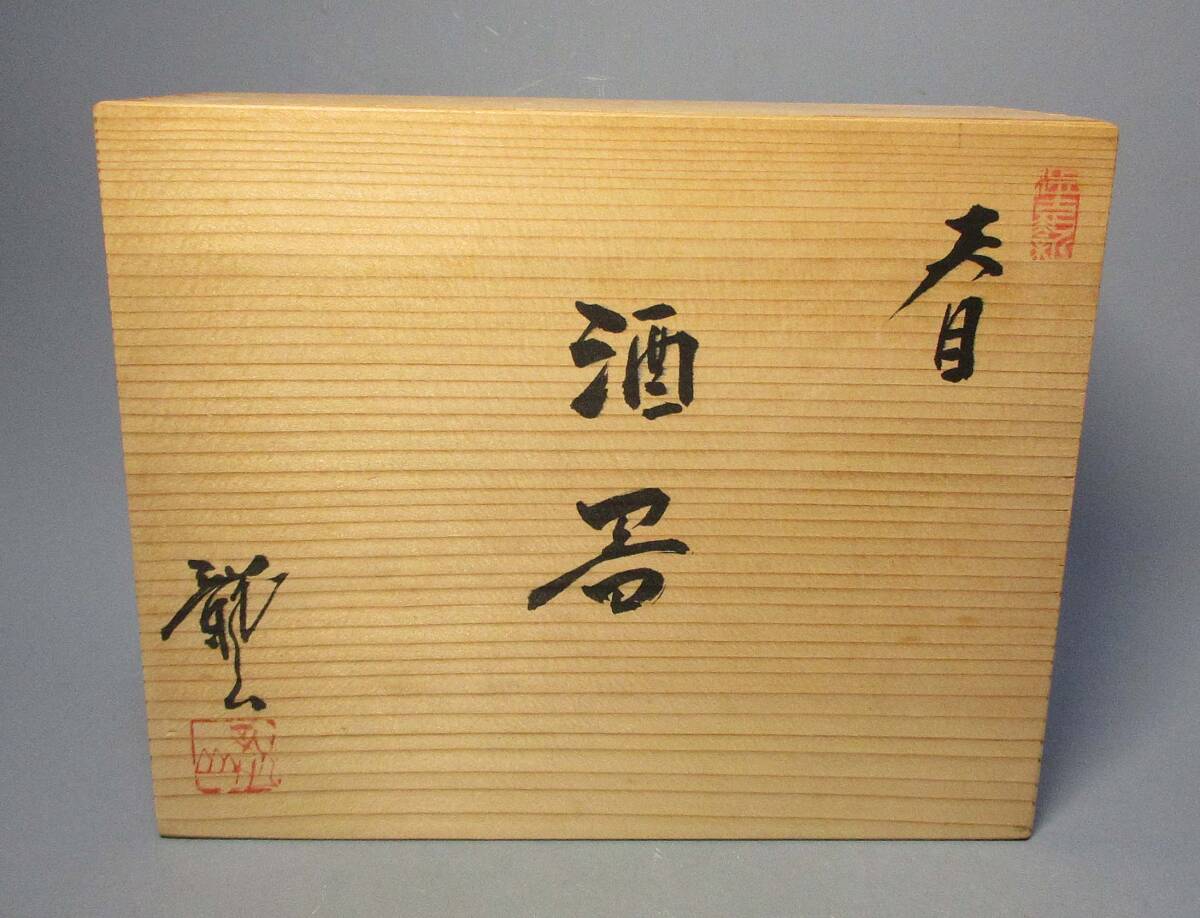 天目
酒器
龍山